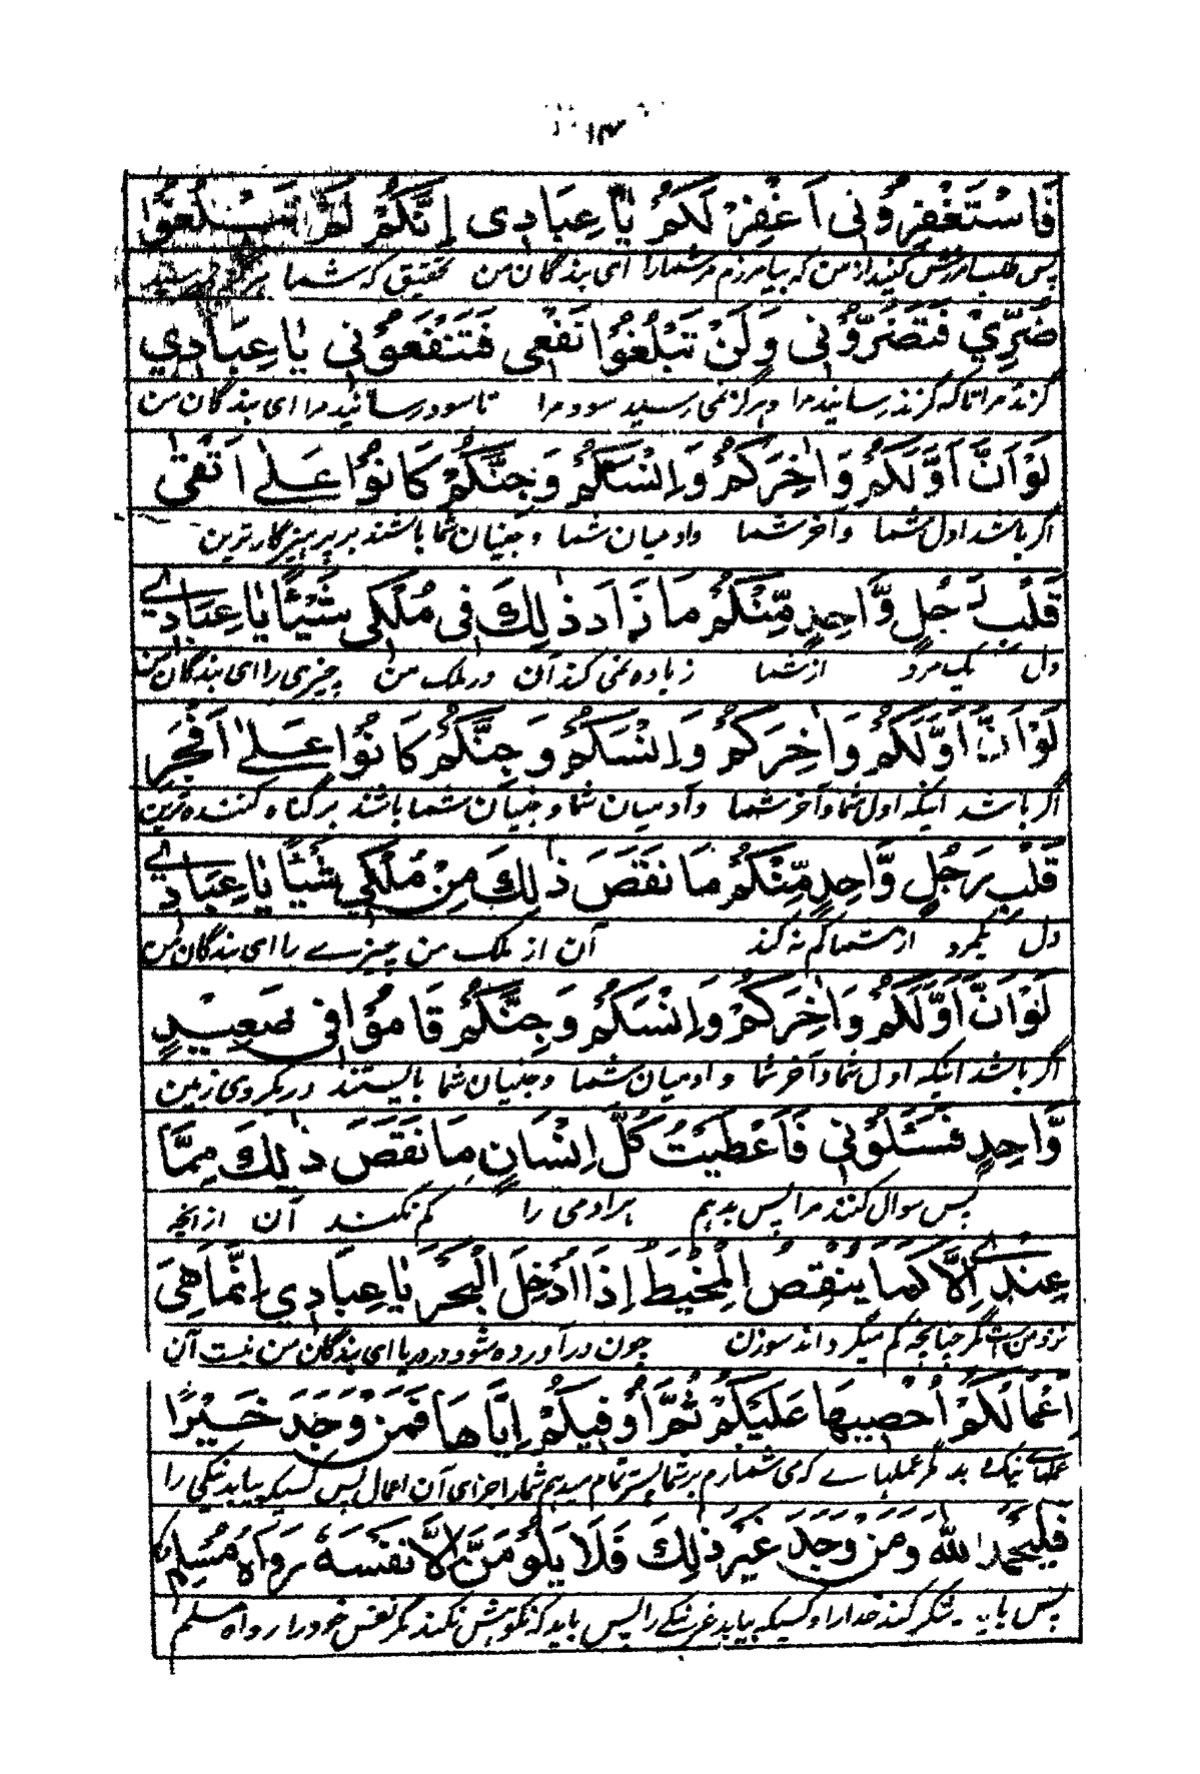 ۱۳
فَاسْتَغْفِرُوْنِی اَغْفِرْ لَکُمْ یٰا عِبَادِی اِنَّکُمْ لَمْ تَبْلُغُوْا
پس طلب امرزش کنید از من که بیامرزم مر شما را ای بندگان من تحقیق که شما
ضُرِّيْ فَتَضُرُّوْنِی وَلَنْ تَبْلُغُوْا نَفْعِی فَتَنْفَعُوْنِی یٰا عِبَادِي
گزند مرا تا که گزند رسانید مرا و هرگز نمی رسید سود مرا تا سود رسانید مرا ای بندگان من
لَوْ اَنَّ اَوَّلَکُمْ وَاٰخِرَکُمْ وَاِنْسَکُمْ وَجِنَّکُمْ کَانُوْا عَلٰی اَتْقٰی
اگر باشد اول شما وآخر شما وادمیان شما و جنیان شما باشند بر پرهیزگار ترین
قَلْبِ رَجُلٍ وَّاحِدٍ مِّنْکُمْ مَا زَادَ ذٰلِكَ فِی مُلْکِی شَیْئًا یٰا عِبَادِے
دل یک مرد از شما زیاده نمی کند آن در ملک من چیزی را ای بندگان من
لَوْ اَنَّ اَوَّلَکُمْ وَاٰخِرَکُمْ وَاِنْسَکُمْ وَجِنَّکُمْ کَانُوْا عَلٰی اَفْجَرِ
اگر باشد اینکه اول شما وآخر شما وآدمیان شما و جنیان شما باشند بر گناه کننده ترین
قَلْبِ رَجُلٍ وَّاحِدٍ مِّنْکُمْ مَا نَقَصَ ذٰلِكَ مِنْ مُلْکِي شَیْئًا یٰا عِبَادِے
دل یکمرد از شما کم نه کند آن از ملک من چیزے را ای بندگان من
لَوْ اَنَّ اَوَّلَکُمْ وَاٰخِرَکُمْ وَاِنْسَکُمْ وَجِنَّکُمْ قَامُوْا فِی صَعِیْدٍ
اگر باشد اینکه اول شما وآخر شما وادمیان شما وجنیان شما بایستند در یکروی زمین
وَّاحِدٍ فَسَئَلُوْنِی فَاَعْطَیْتُ کُلَّ اِنْسَانٍ مَا نَقَصَ ذٰلِكَ مِمَّا
پس سوال کنند مرا پس بدهم هر ادمی را کم نکند آن از انچه
عِنْدِے اِلَّا کَمَا یَنْقُصُ الْمِخْیَطُ اِذَا اُدْخِلَ الْبَحْرَ یٰا عِبَادِي اِنَّمَا هِیَ
نزد من است مگر چنانچه کم میگرداند سوزن چون درآورده شود در دریا ای بندگان من نیست آن
اَعْمَالُکُمْ اُحْصِیْهَا عَلَیْکُمْ ثُمَّ اُوَفِّیْکُمْ اِیَّاهَا فَمَنْ وَجَدَ خَیْرًا
عملهاے نیک و بد مگر عملهاے که می شمارم بر شما پستر تمام میدهم شما را جزای آن اعمال پس کسیکه بیابد نیکی را
فَلْیَحْمَدِ اللّٰهَ وَمَنْ وَجَدَ غَیْرَ ذٰلِكَ فَلَا یَلُوْمَنَّ اِلَّا نَفْسَهٗ رَوَاهُ مُسْلِمٌ
پس باید شکر کند خدا را و کسیکه بیابد غیر نیکے را پس باید که نکوهش نکند مگر نفس خود را رواه مسلم